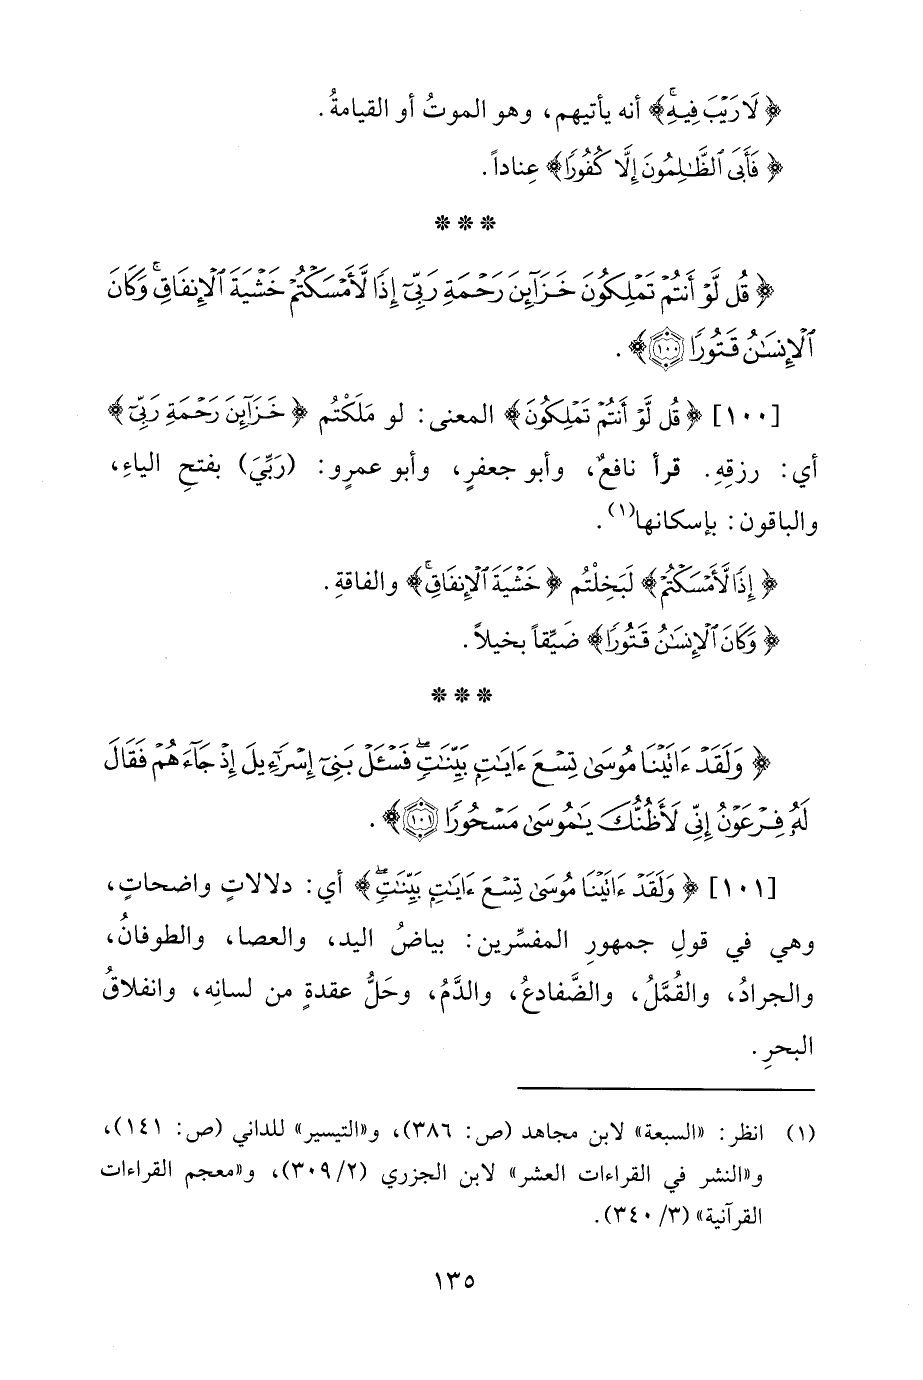 ﴿لَا رَيْبَ فِيهِ﴾ أنه يأتيهم، وهو الموتُ أو القيامةُ.
﴿فَأَبَى ٱلظَّـٰلِمُونَ إِلَّا كُفُورًا﴾ عِناداً.
* * *
﴿قُل لَّوْ أَنتُمْ تَمْلِكُونَ خَزَآئِنَ رَحْمَةِ رَبِّىٓ إِذًا لَّأَمْسَكْتُمْ خَشْيَةَ ٱلْإِنفَاقِ ۚ وَكَانَ
ٱلْإِنسَـٰنُ قَتُورًا ١٠٠﴾.
[١٠٠] ﴿قُل لَّوْ أَنتُمْ تَمْلِكُونَ﴾ المعنى: لو مَلَكْتُم ﴿خَزَآئِنَ رَحْمَةِ رَبِّىٓ﴾
أي: رزقِهِ. قرأ نافعٌ، وأبو جعفرٍ، وأبو عمرٍو: (رَبِّيَ) بفتحِ الياءِ،
والباقون: بإسكانها(١).
﴿إِذًا لَّأَمْسَكْتُمْ﴾ لَبَخِلْتُم ﴿خَشْيَةَ ٱلْإِنفَاقِ ۚ﴾ والفاقةِ.
﴿وَكَانَ ٱلْإِنسَـٰنُ قَتُورًا﴾ ضَيِّقاً بخيلاً.
* * *
﴿وَلَقَدْ ءَاتَيْنَا مُوسَىٰ تِسْعَ ءَايَـٰتٍۭ بَيِّنَـٰتٍ ۖ فَسْـَٔلْ بَنِىٓ إِسْرَٰٓءِيلَ إِذْ جَآءَهُمْ فَقَالَ
لَهُۥ فِرْعَوْنُ إِنِّى لَأَظُنُّكَ يَـٰمُوسَىٰ مَسْحُورًا ١٠١﴾.
[١٠١] ﴿وَلَقَدْ ءَاتَيْنَا مُوسَىٰ تِسْعَ ءَايَـٰتٍۭ بَيِّنَـٰتٍ ۖ﴾ أي: دلالاتٍ واضحاتٍ،
وهي في قولِ جمهورِ المفسِّرين: بياضُ اليد، والعصا، والطوفانُ،
والجرادُ، والقُمَّلُ، والضَّفادعُ، والدَّمُ، وحَلُّ عقدةٍ من لسانِه، وانفلاقُ
البحرِ.
(١) انظر: «السبعة» لابن مجاهد (ص: ٣٨٦)، و«التيسير» للداني (ص: ١٤١)،
و«النشر في القراءات العشر» لابن الجزري (٢/ ٣٠٩)، و«معجم القراءات
القرآنية» (٣/ ٣٤٠).
١٣٥